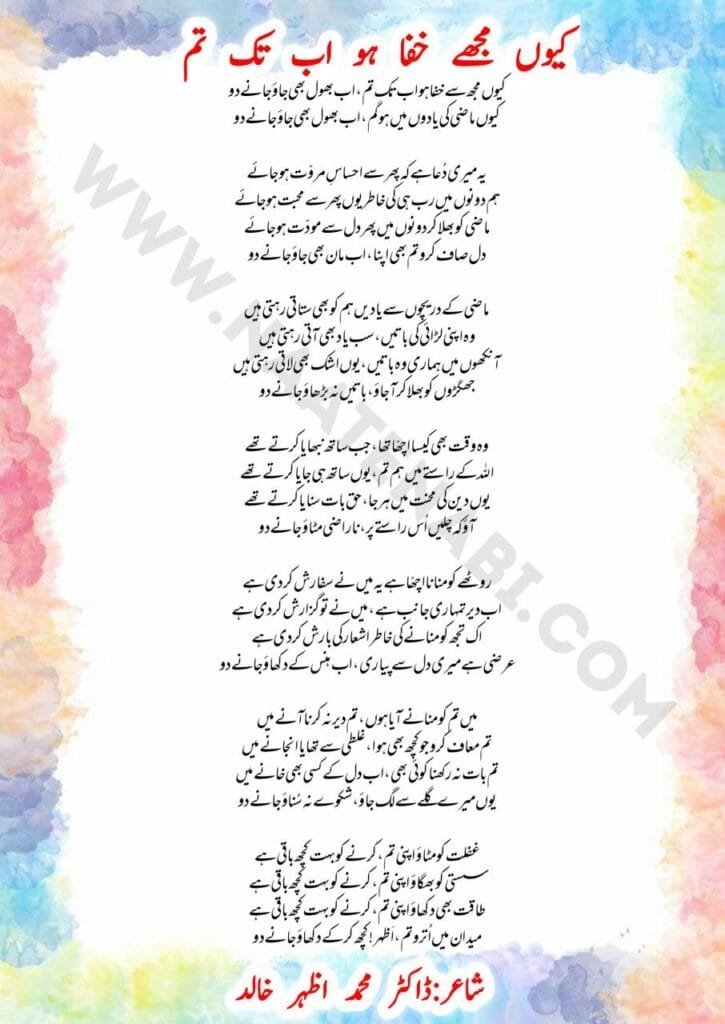 کیوں مجھے خفا ہو اب تک تم
کیوں مجھ سے خفا ہو اب تک تم، اب بھول بھی جاؤ جانے دو
کیوں ماضی کی یادوں میں ہو گم، اب بھول بھی جاؤ جانے دو
یہ میری دُعا ہے کہ پھر سے احساسِ مروّت ہو جائے
ہم دونوں میں رب ہی کی خاطر یوں پھر سے محبت ہو جائے
ماضی کو بھلا کر دونوں میں پھر دل سے مودّت ہو جائے
دل صاف کرو تم بھی اپنا، اب مان بھی جاؤ جانے دو
ماضی کے دریچوں سے یادیں ہم کو بھی ستاتی رہتی ہیں
وہ اپنی لڑائی کی باتیں، سب یاد بھی آتی رہتی ہیں
آنکھوں میں ہماری وہ باتیں، یوں اشک بھی لاتی رہتی ہیں
جھگڑوں کو بھلا کر آ جاؤ، باتیں نہ بڑھاؤ جانے دو
وہ وقت بھی کیسا اچھا تھا، جب ساتھ نبھایا کرتے تھے
اللہ کے راستے میں ہم تم، یوں ساتھ ہی جایا کرتے تھے
یوں دین کی محنت میں ہر جا، حق بات سنایا کرتے تھے
آؤ کہ چلیں اُس راستے پر، ناراضی مٹاؤ جانے دو
روٹھے کو منانا اچھا ہے یہ میں نے سفارش کر دی ہے
اب دیر تمہاری جانب ہے، میں نے تو گزارش کر دی ہے
اک تجھ کو منانے کی خاطر اشعار کی بارش کر دی ہے
عرضی ہے میری دل سے پیاری، اب ہنس کے دکھاؤ جانے دو
میں تم کو منانے آیا ہوں، تم دیر نہ کرنا آنے میں
تم معاف کرو جو کچھ بھی ہوا، غلطی سے تھا یا انجانے میں
تم بات نہ رکھنا کوئی بھی، اب دل کے کسی بھی خانے میں
یوں میرے گلے سے لگ جاؤ، شکوے نہ سُناؤ جانے دو
غفلت کو مٹاؤ اپنی تم، کرنے کو بہت کچھ باقی ہے
سستی کو بھگاؤ اپنی تم، کرنے کو بہت کچھ باقی ہے
طاقت بھی دکھاؤ اپنی تم، کرنے کو بہت کچھ باقی ہے
میدان میں اُترو تم، اَظہر! کچھ کر کے دکھاؤ جانے دو
شاعر: ڈاکٹر محمد اظہر خالد
WWW.NAATENABI.COM